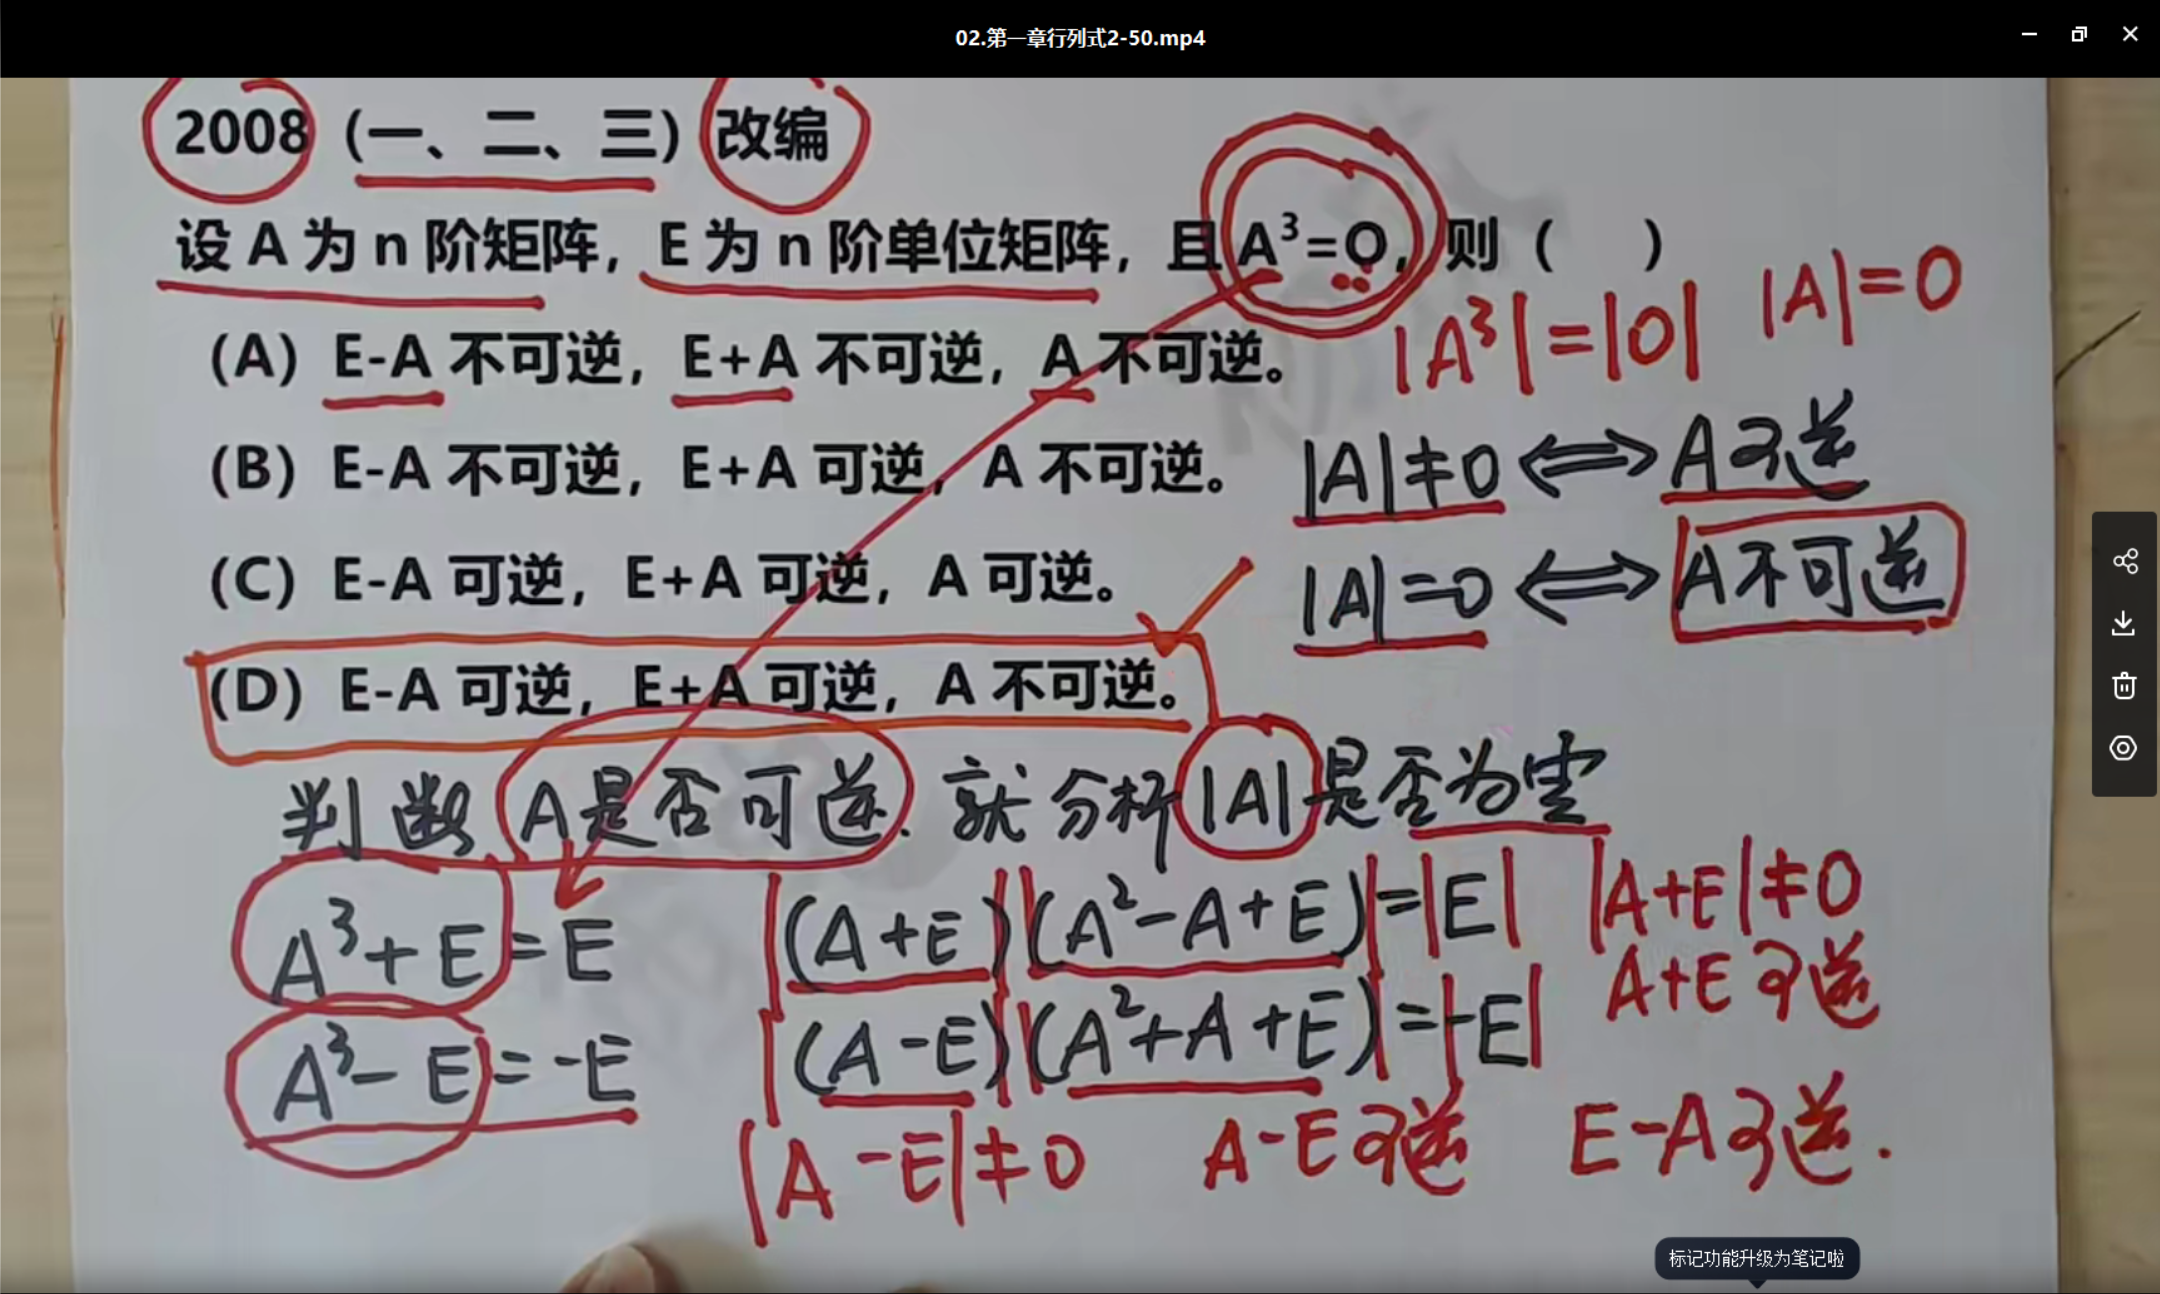 02.第一章行列式2-50.mp4
2008（一、二、三）改编
设 A 为 n 阶矩阵，E 为 n 阶单位矩阵，且 A³=O，则（ ）
|A|=0
|A³|=|0|
（A）E-A 不可逆，E+A 不可逆，A 不可逆。
（B）E-A 不可逆，E+A 可逆，A 不可逆。
|A|≠0 ⟺ A可逆
（C）E-A 可逆，E+A 可逆，A 可逆。
|A|=0 ⟺ A不可逆
（D）E-A 可逆，E+A 可逆，A 不可逆。
判断 A是否可逆. 就分析|A|是否为零
A³+E=E |(A+E)||(A²-A+E)|=|E| |A+E|≠0
A+E可逆
A³-E=-E |(A-E)||(A²+A+E)|=|-E|
|A-E|≠0 A-E可逆 E-A可逆.
标记功能升级为笔记啦